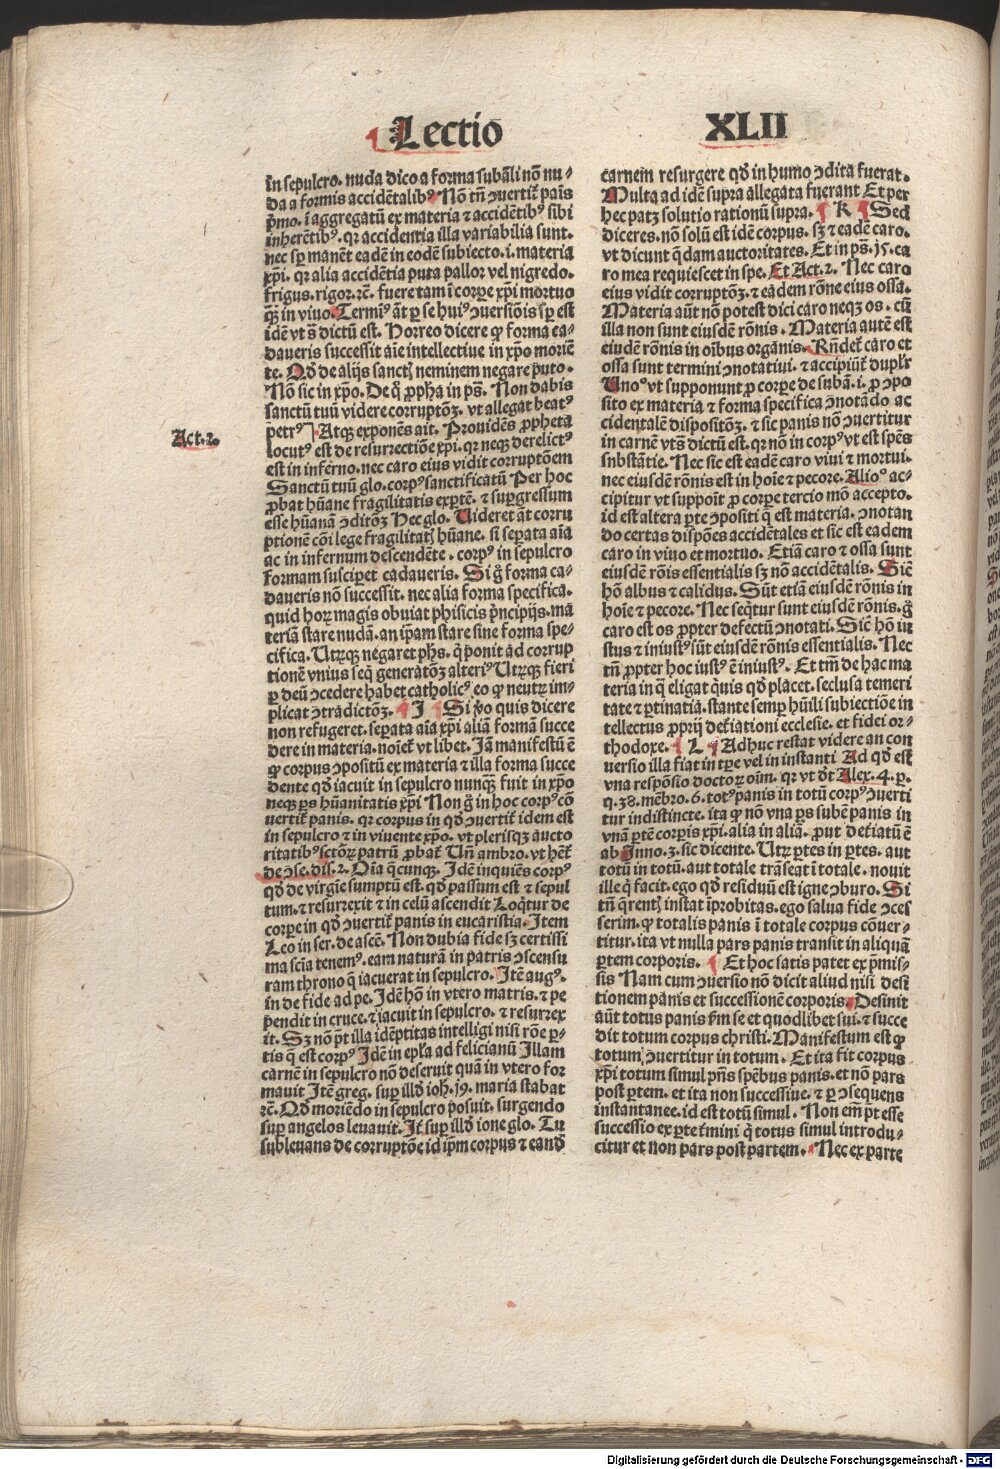 Lectio XLII
in sepulcro. nuda dico a forma subali nō nu-
da a formis accidētalibꝰ Nō tn̄ ↄuertit̄ pais
p̄mo. i aggregatū ex materia ⁊ accidētibꝰ sibi
inherētibꝰ. qr accidentia illa variabilia sunt.
nec sp̄ manēt eadē in eodē subiecto. i. materia
xp̄i. qr alia accidētia puta pallor vel nigredo.
frigus. rigor. ⁊c. fuere tam ī corpe xp̄i mortuo
qȝ in viuo. Termīꝰ āt p se huiꝰ ↄuersiōis sp̄ est
idē vt s̄ dictū est. Horreo dicere ꝙ forma ca-
daueris successit aīe intellectiue in xp̄o moriē
te. Qd̄ de alijs sanctꝭ neminem negare puto.
Nō sic in xp̄o. De q̄ ꝓpha in ps̄. Non dabis
sanctū tuū videre corruptōȝ. vt allegat beatꝰ
petrꝰ Atqȝ exponēs ait. Prouidēs ꝓpheta
Act. 2.
locutꝰ est de resurrectiōe xp̄i. qr neqȝ derelictꝰ
est in inferno. nec caro eius vidit corruptōem
Sanctū tuū glo. corpꝰ sanctificatū Per hoc
ꝓbat hūane fragilitatis exptē. ⁊ supgressum
esse hūanā ↄditōȝ Hec glo. Uideret āt corru
ptionē cōi lege fragilitatꝭ hūane. si sepata aīa
ac in infernum descendēte. corpꝰ in sepulcro
formam suscipet cadaueris. Si g̊ forma ca-
daueris nō successit. nec alia forma specifica.
quid hoꝝ magis obuiat phisicis p̄ncipijs. ma
teriā stare nudā. an ip̄am stare sine forma spe-
cifica. Utrūqȝ negaret ph̄s. q̄ ponit ad corrup
tionē vnius seq̄ generatōȝ alteriꝰ Utrūqȝ fieri
p deū ↄcedere habet catholicꝰ eo ꝙ neutꝝ im-
plicat ↄtradictōȝ. I Si v̊o quis dicere
non refugeret. sepata aīa xp̄i aliā formā succe
dere in materia. noiet̄ vt libet. Jā manifestū ē
ꝙ corpus ↄpositū ex materia ⁊ illa forma succe
dente qd̄ iacuit in sepulcro nunqȝ fuit in xp̄o
neqȝ ps hūanitatis xp̄i Non g̊ in hoc corpꝰ cō
uertit̄ panis. qr corpus in qd̄ ↄuertit̄ idem est
in sepulcro ⁊ in viuente xp̄o. vt plerisqȝ aucto
ritatibꝰ sctōꝝ patrū ꝓbat̄ Un̄ ambro. vt hēt̄
de ↄse. dis. 2. Oīa q̄cunqȝ. Idē inquiēs corpꝰ
qd̄ de virgīe sumptū est. qd̄ passum est ⁊ sepul
tum. ⁊ resurrexit ⁊ in celū ascendit Loq̄tur de
corpe in qd̄ ↄuertit̄ panis in eucaristia. Item
Leo in ser. de ascē. Non dubia fide sȝ certissi
ma scīa tenemꝰ. eam naturā in patris ↄscensu
ram throno q̄ iacuerat in sepulcro. Itē augꝰ.
in de fide ad pe. Idē hō in vtero matris. ⁊ pe
pendit in cruce. ⁊ iacuit in sepulcro. ⁊ resurrex
it. Sȝ nō pt illa idēptitas intelligi nisi rōe p-
tis q̄ est corpꝰ Idē in epl̄a ad felicianū Illam
carnē in sepulcro nō deseruit quā in vtero for
mauit Itē greg. sup illd̄ ioh. 19. maria stabat
⁊c. Qd̄ moriēdo in sepulcro posuit. surgendo
sup angelos leuauit. It̄ sup illd̄ ione glo. Tu
subleuans de corruptōe id ip̄m corpus ⁊ eandē
carnem resurgere qd̄ in humo ↄdita fuerat.
Multa ad idē supra allegata fuerant Et per
hec patȝ solutio rationū supra. K Sed
diceres. nō solū est idē corpus. sȝ ⁊ eadē caro.
vt dicunt q̄dam auctoritates. Et in ps̄. 15. ca
ro mea requiescet in spe. Et Act. 2. Nec caro
eius vidit corruptōȝ. ⁊ eadem rōne eius ossa.
Materia aūt nō potest dici caro neqȝ os. cū
illa non sunt eiusdē rōnis. Materia autē est
eiudē rōnis in oībus organis. Rn̄det̄ caro et
ossa sunt termini ↄnotatiui. ⁊ accipiūt̄ duplr
Unoꝰ vt supponunt ꝓ corpe de subā. i. ꝓ ↄpo
sito ex materia ⁊ forma specifica ↄnotādo ac
cidentalē dispositōȝ. ⁊ sic panis nō ↄuertitur
in carnē vt s̄ dictū est. qr nō in corpꝰ vt est spēs
snbstātie. Nec sic est eadē caro viui ⁊ mortui.
nec eiusdē rōnis est in hoīe ⁊ pecore. Alioꝰ ac-
cipitur vt suppoīt ꝓ corpe tercio mō accepto.
id est altera pte ↄpositi q̄ est materia. ↄnotan
do certas dispōes accidētales et sic est eadem
caro in viuo et mortuo. Etiā caro ⁊ ossa sunt
eiusdē rōis essentialis sȝ nō accidētalis. Siē
hō albus ⁊ calidus. Sūt etiā eiusdē rōnis in
hoīe ⁊ pecore. Nec seq̄tur sunt eiusdē rōnis. g̊
caro est os ꝓpter defectū ↄnotati. Sic̄ hō iu
stus ⁊ iniustꝰ sūt eiusdē rōnis essentialis. Nec
tn̄ ꝓpter hoc iustꝰ ē iniustꝰ. Et tm̄ de hac ma
teria in q̄ eligat quis qd̄ placet. seclusa temeri
tate ⁊ ptinatia. stante semp hūili subiectiōe in
tellectus ꝓprij det̄iationi ecclesie. et fidei or-
thodoxe. L Adhuc restat videre an con
uersio illa fiat in tpe vel in instanti Ad qd̄ est
vna respōsio doctoꝝ oīm. qr vt dt̄ Alex. 4. p.
q. 38. mēbro. 6. totꝰ panis in totū corpꝰ ↄuerti
tur indistincte. ita ꝙ nō vna ps subē panis in
vnā ptē corpis xp̄i. alia in aliā. ꝓut det̄iatū ē
ab Inno. 3. sic dicente. Utꝝ ptes in ptes. aut
totū in totū. aut totale trāseat ī totale. nouit
ille q̄ facit. ego qd̄ residuū est igne ↄburo. Si
tn̄ q̄rentꝭ instat īprobitas. ego salua fide ↄces
serim. ꝙ totalis panis ī totale corpus cōuer-
titur. ita vt nulla pars panis transit in aliquā
ptem corporis. Et hoc satis patet ex p̄mis-
sis Nam cum ↄuersio nō dicit aliud nisi desi
tionem panis et successionē corporis. Desinit
aūt totus panis fm se et quodlibet sui. ⁊ succe
dit totum corpus christi. Manifestum est ꝙ
totum ↄuertitur in totum. Et ita fit corpus
xp̄i totum simul pn̄s spēbus panis. et nō pars
post ptem. et ita non successiue. ⁊ p ↄsequens
instantanee. id est totū simul. Non em̄ pt esse
successio ex pte t̄mini q̄ totus simul introdu-
citur et non pars post partem. Nec ex parte
Digitalisierung gefördert durch die Deutsche Forschungsgemeinschaft - DFG